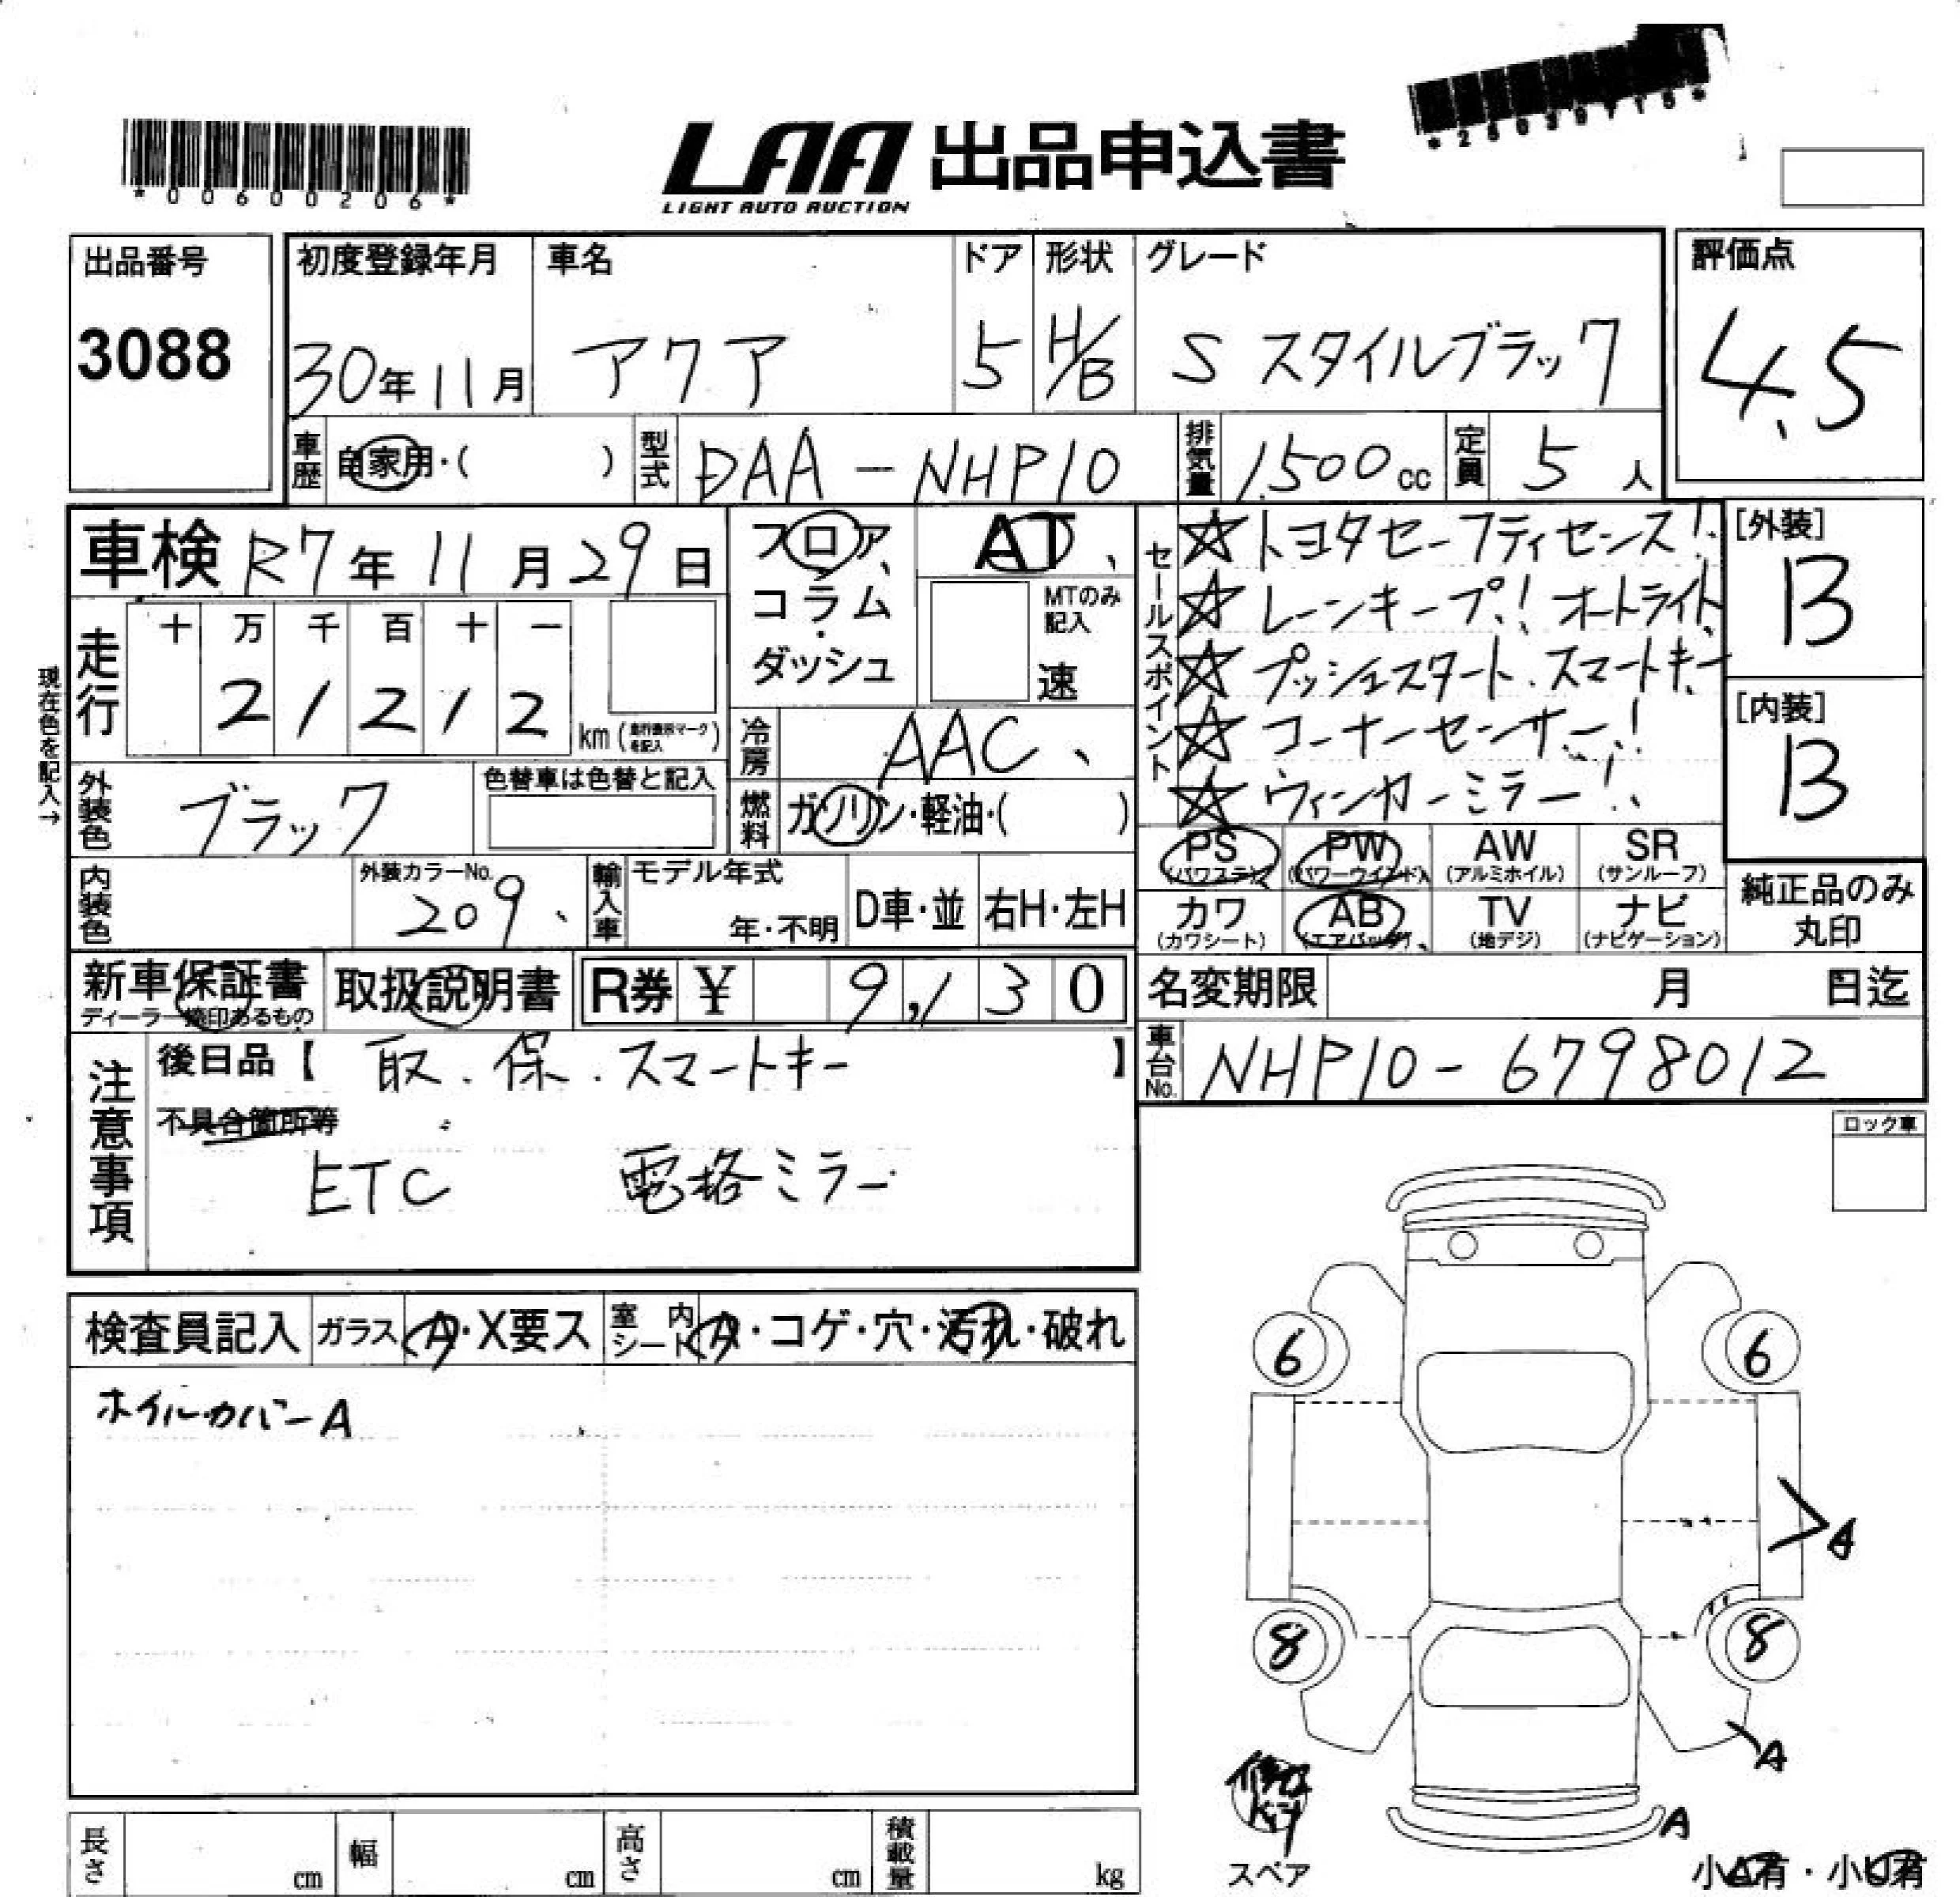 *00600206*
LAA 出品申込書
LIGHT AUTO AUCTION
出品番号
3088
初度登録年月
30年11月
車名
アクア
ドア
5
形状
H/B
グレード
S スタイルブラック
評価点
4.5
車歴
自家用・( )
型式
DAA-NHP10
排気量
1,500cc
定員
5人
車検 R7年11月29日
フロア、
コラム
・
ダッシュ
AT、
MTのみ
記入
速
セールスポイント
☆トヨタセーフティセンス!
☆レーンキープ!オートライト
☆プッシュスタート.スマートキー
☆コーナーセンサー!
☆ウィンカーミラー!
[外装]
B
[内装]
B
現在色を記入→
走行
十 万 千 百 十 一
2 1 2 1 2
km(走行表示マークを記入)
冷房
AAC、
外装色
ブラック
色替車は色替と記入
燃料
ガソリン・軽油・( )
PS
(パワステ)
PW
(パワーウインド)
AW
(アルミホイル)
SR
(サンルーフ)
カワ
(カワシート)
AB
(エアバッグ)
TV
(地デジ)
ナビ
(ナビゲーション)
純正品のみ
丸印
内装色
外装カラーNo.
209、
輸入車
モデル年式
年・不明
D車・並
右H・左H
新車保証書
ディーラー捺印あるもの
取扱説明書
R券 ¥ 9,130
名変期限 月 日迄
車台No.
NHP10-6798012
注意事項
後日品【 取.保.スマートキー 】
不具合箇所等
ETC 電格ミラー
ロック車
検査員記入
ガラス
A・X要ス
室内シート
A・コゲ・穴・汚れ・破れ
ホイルカバーA
6
6
A
8
8
A
A
スペア
小A有・小U有
長さ cm
幅 cm
高さ cm
積載量 kg